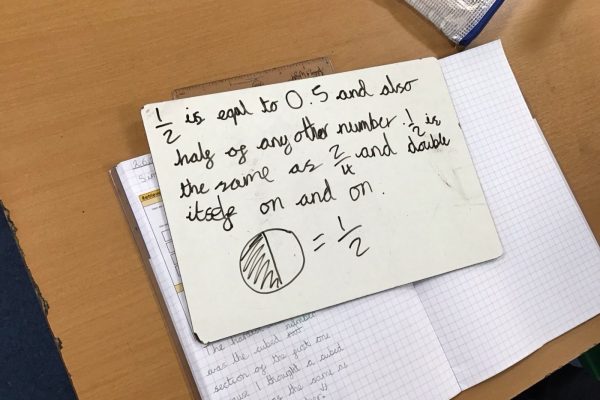 1/2 is eqal to 0.5 and also
half of any other number. 1/2 is
the same as 2/4 and double
itself on and on.
= 1/2
The
number
was the cubed
section of the first one
I thought a cubed
the same as